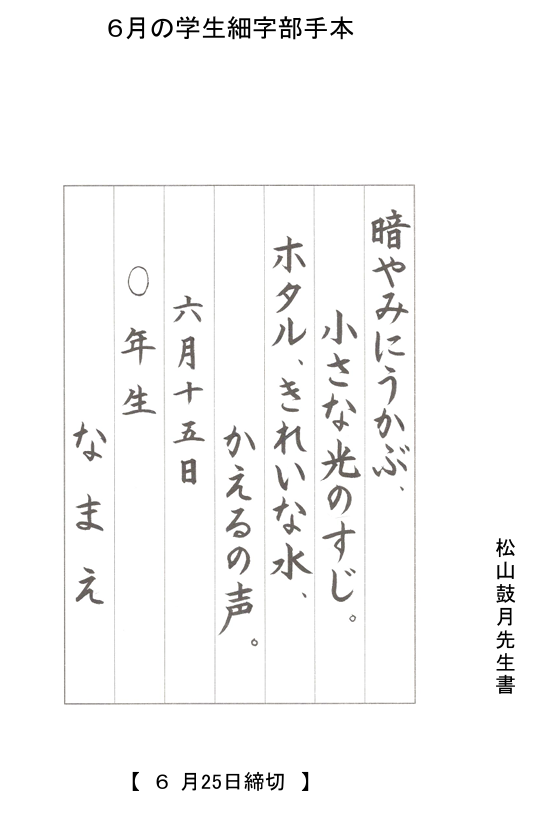 ６月の学生細字部手本
暗やみにうかぶ、
小さな光のすじ。
ホタル、きれいな水、
かえるの声。
六月十五日
○年生
なまえ
松山鼓月先生書
【 ６ 月25日締切 】